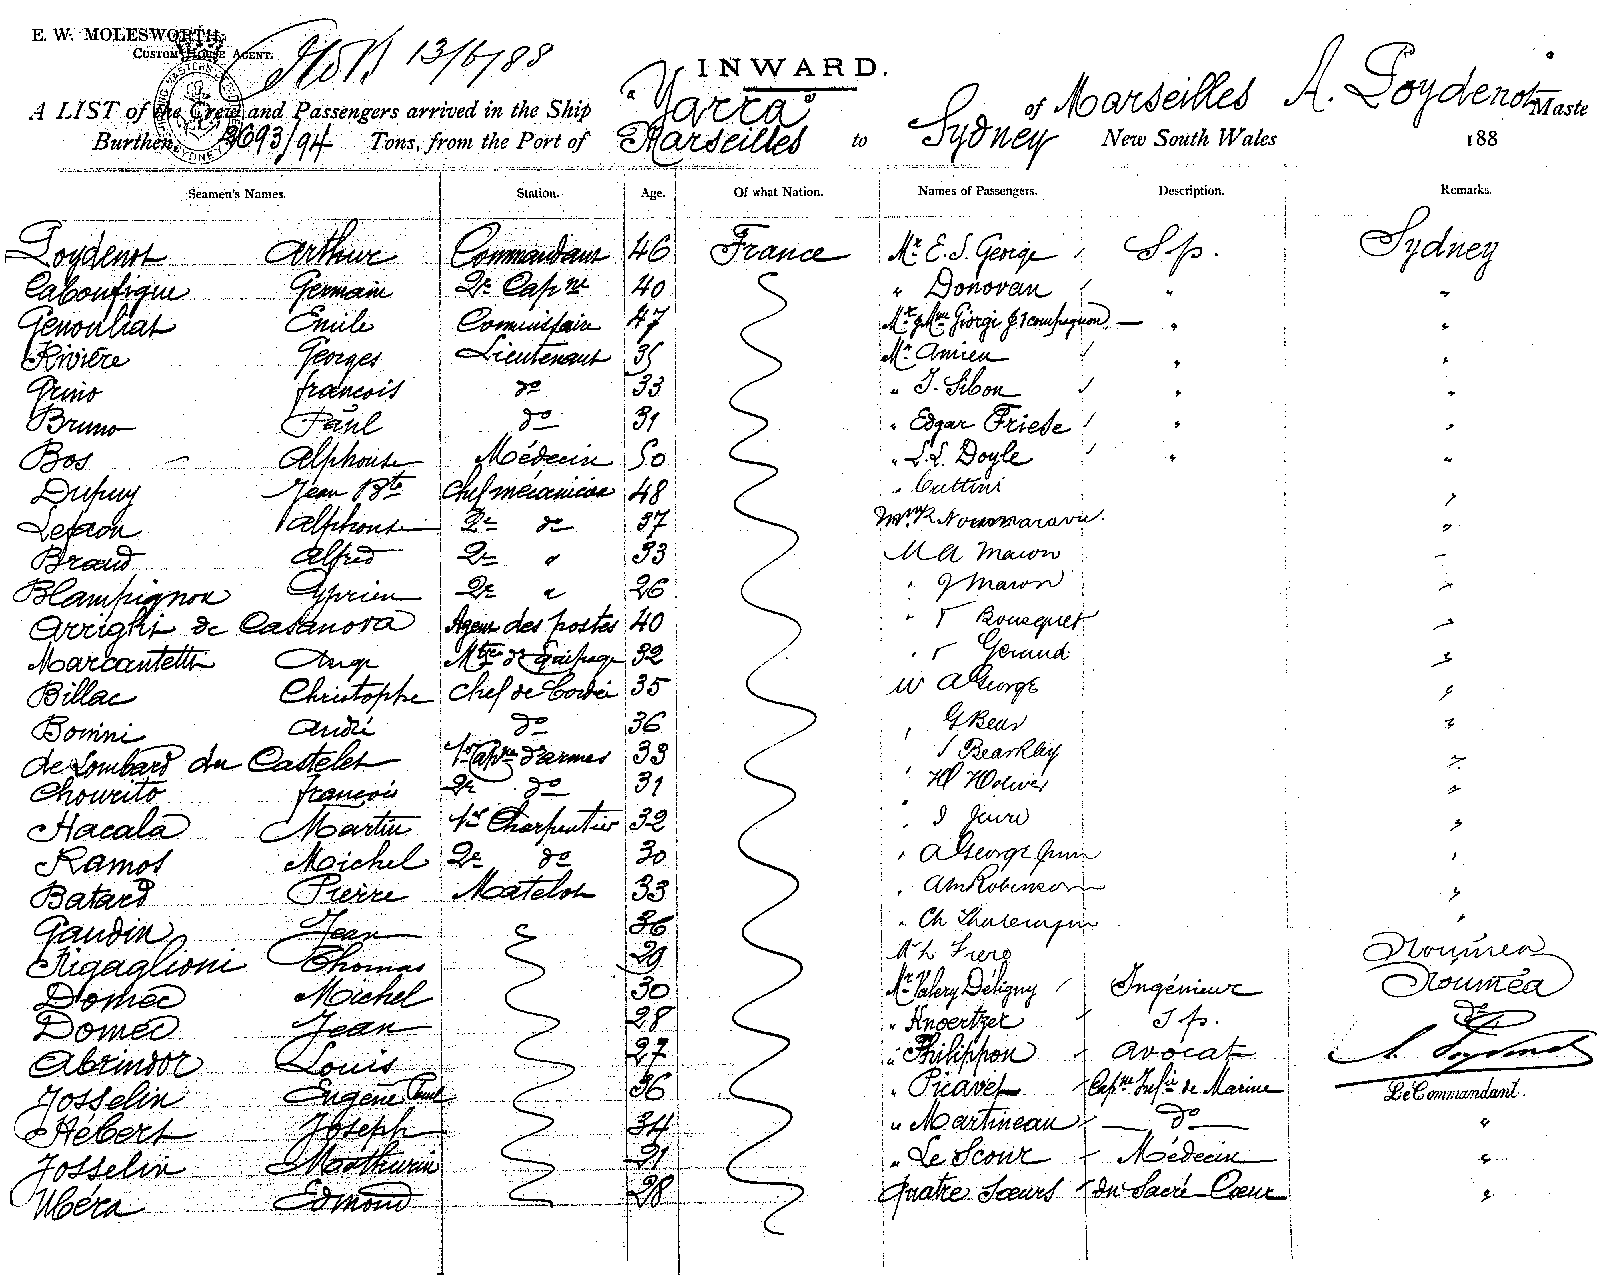 E. W. MOLESWORTH,
CUSTOM HOUSE AGENT.
13/6/88
INWARD.
A LIST of the Crew and Passengers arrived in the Ship "Yarra" of Marseilles A. Poydenot Maste
Burthen 3693/94 Tons, from the Port of Marseilles to Sydney New South Wales 188
Seamen's Names. Station. Age. Of what Nation. Names of Passengers. Description. Remarks.
Poydenot Arthur Commandant 46 France Mr. E. S. George Sp. Sydney
Laboufigue Germain 2e Capne 40 " Donovan " "
Genoulhat Emile Commissaire 47 Mr & Mme Giorgi & 1 compagnon — " "
Rivière Georges Lieutenant 35 Mr Amien " "
Grino françois do 33 " J. Sibon " "
Bruno Paul do 31 " Edgar Friese " "
Bos Alphonse Médecin 50 " L. L. Doyle " "
Dupuy Jean Bte Chef mécanicien 48 " Cuttini "
Alphonse 2e do 37 "
Braud Alfred 2e " 33 M A Macon "
Blampignon Cyprien 2e " 26 " J Macon "
Arrighi de Casanova Agent des postes 40 " Bousquet "
Marcantetti Ange Mtre d'Equipage 32 " Geraud "
Billac Christophe Chef de 35 A George "
Bonini André do 36 " G Bear "
de Lombard du Castelet 1er Capne d'armes 33 "
Chourito françois 2e do 31 " "
Hacala Martin 1er Charpentier 32 " "
Ramos Michel 2e do 30 " A George "
Batard Pierre Matelot 33 " A M Robinson "
Gaudin Jean 36 " Ch "
Rigaglioni Thomas 29 Nouméa
Domec Michel 30 Mr Valery Déligny Ingénieur Nouméa
Domec Jean 28 " Knoertzer Sp. do
Abrindor Louis 27 " Philippon Avocat A. Poydenot
Josselin Eugène Paul 36 " Picavet Capne Infie de Marine Le Commandant.
Hébert Joseph 34 " Martineau — do — "
Josselin Mathurin 21 " Le Scour Médecin "
Ubéra Edmond 28 quatre Sœurs du Sacré-Cœur "